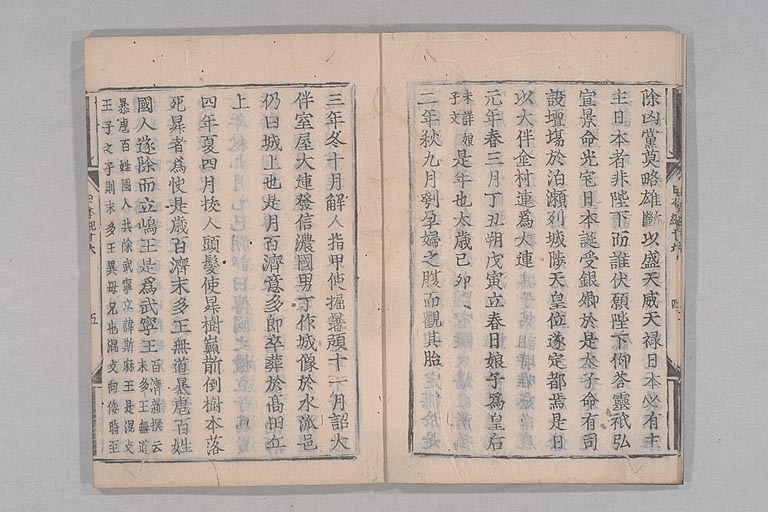 除凶黨莫略雄斷以盛天威天禄日本必有主
主日本者非陛下而誰伏願陛下仰荅靈祇弘
宣景命光宅日本誕受銀鄉於是太子命有司
設壇場於泊瀬列城陟天皇位遂定都焉是日
以大伴金村連爲大連
元年春三月丁丑朔戊寅立春日娘子爲皇后
未詳娘
子父
是年也太歳己卯
二年秋九月刳孕婦之腹而觀其胎
三年冬十月解人指甲使掘暑頭十一月詔大
伴室屋大連發信濃國男丁作城像於水派邑
仍曰城上也是月百濟意多郎卒葬於高田丘
上
四年夏四月拔人頭髮使昇樹巔斮倒樹本落
死昇者爲快是歳百濟末多王無道暴虐百姓
國人遂除而立嶋王是爲武寧王
百濟新撰云
末多王無道
暴虐百姓國人共除武寧立諱斯麻王是混支
王子之子則末多王異母兄也混支向倭時至
五